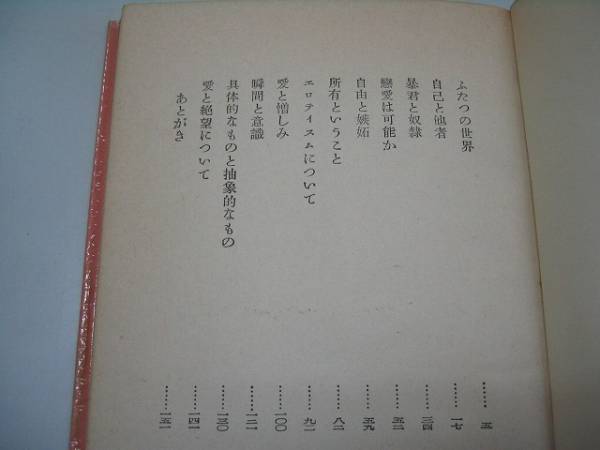 ふたつの世界……五
自己と他者……一七
暴君と奴隷……三四
戀愛は可能か……五二
自由と嫉妬……五九
所有ということ……八二
エロテイスムについて……九二
愛と憎しみ……一〇〇
瞬間と意識……一二一
具体的なものと抽象的なもの……一三〇
愛と絶望について……一四一
あとがき……一五一